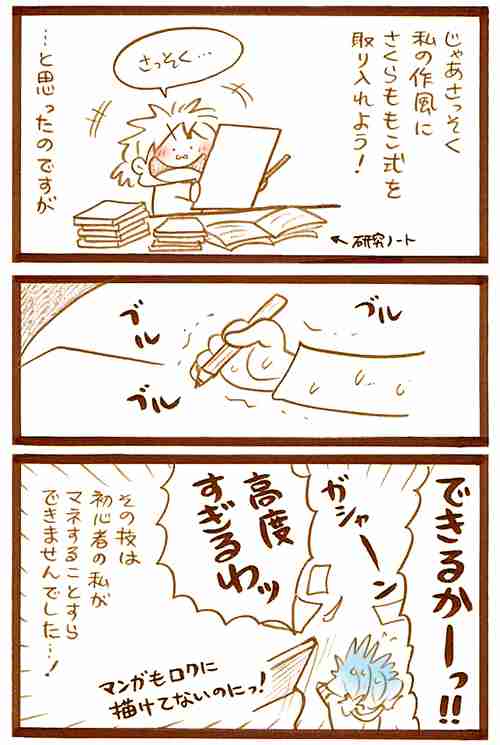 じゃあさっそく
私の作風に
さくらももこ式を
取り入れよう！
さっそく…
…と思ったのですが
←研究ノート
ブル
ブル
ブル
できるかーっ!!
ガシャーン
高度
すぎるわッ
その技は
初心者の私が
マネすることすら
できませんでした…！
マンガもロクに
描けてないのにっ！